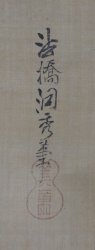 法橋洞秀筆